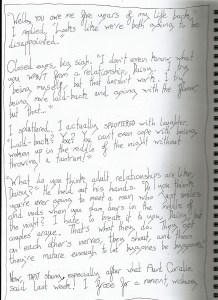 "Well, you owe me five years of my life back,"
I replied, "Looks like we're both going to be
disappointed."
Closed eyes, big sigh. "I don't even know what
you want from a relationship, Daisy. I try
being myself, but that doesn't work. I try
being more laid-back and going with the flow,
but that..."
I spluttered. I actually spluttered with laughter.
"Laid-back? You? You can't even cope with being
woken up in the middle of the night without
throwing a tantrum!"
"What do you think adult relationships are like,
Daisy?" He held out his hands. "Do you think
you're ever going to meet a man who
and
the night? I hate to break it to you, Daisy, but
couples argue. That's what they do. They get
on each other's nerves, they shout, and then
they're mature enough to let bygones be bygones."
Now, that stung, especially after what Aunt Coralie
said last week. I froze for a moment, wishing